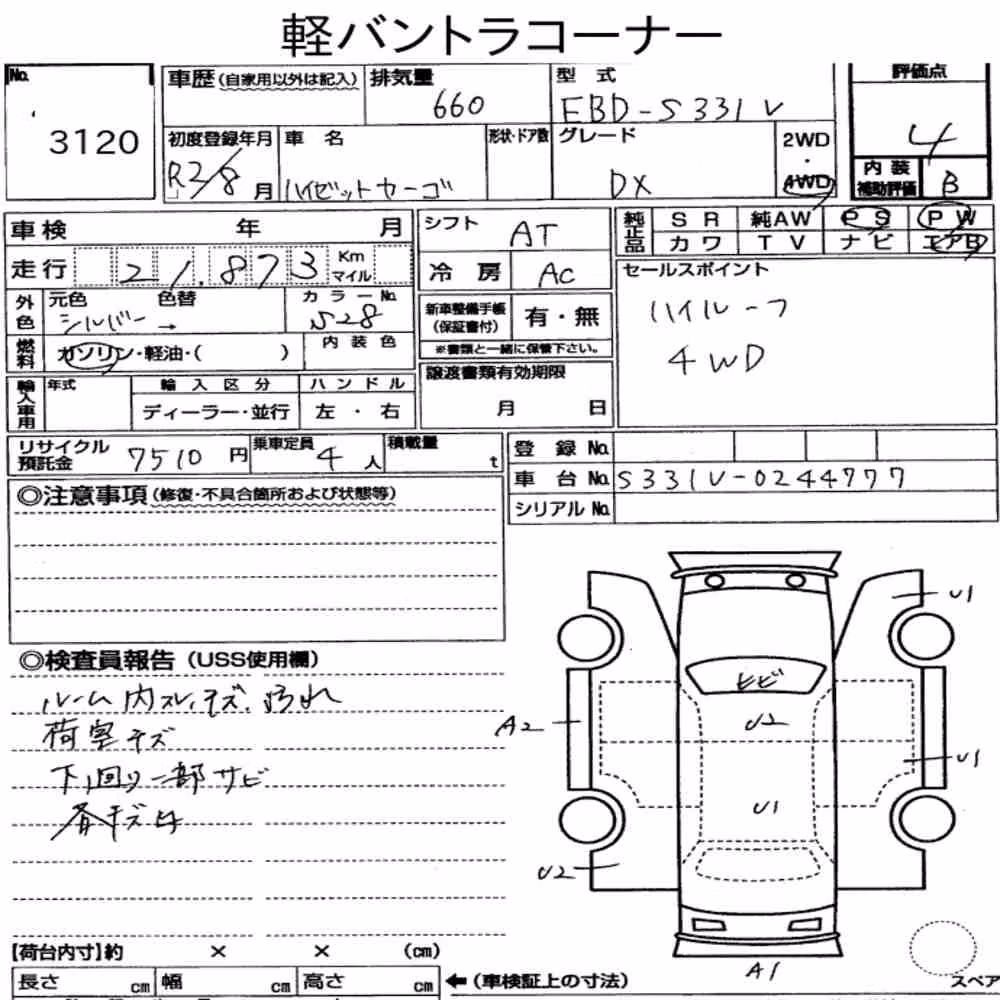 軽バントラコーナー
No.
3120
車歴(自家用以外は記入)
排気量
660
型 式
EBD-S331V
評価点
4
初度登録年月
R2/8月
車 名
ハイゼットカーゴ
形状・ドア数
グレード
DX
2WD
・
4WD
内 装
補助評価
B
車検 年 月
シフト
AT
純正品
SR 純AW PS PW
カワ TV ナビ エアB
走行 21,873 Km マイル
冷 房
AC
セールスポイント
ハイルーフ
4WD
外色
元色 色替
シルバー →
カラーNo.
S28
新車整備手帳
(保証書付)
有・無
※書類と一緒に保管下さい。
燃料
ガソリン・軽油・( )
内 装 色
輸入車用
年式
輸 入 区 分
ハ ン ド ル
ディーラー・並行
左 ・ 右
譲渡書類有効期限
月 日
リサイクル
預託金
7510 円
乗車定員
4人
積載量
t
登 録 No.
車 台 No. S331V-0244777
シリアル No.
◎注意事項(修復・不具合箇所および状態等)
◎検査員報告(USS使用欄)
ルーム内スレ、キズ、汚れ
荷室キズ
下回り一部サビ
U1
ヒビ
A2
U2
U1
U1
U2
A1
【荷台内寸】約 × × (cm)
長さ cm 幅 cm 高さ cm
←(車検証上の寸法)
スペア